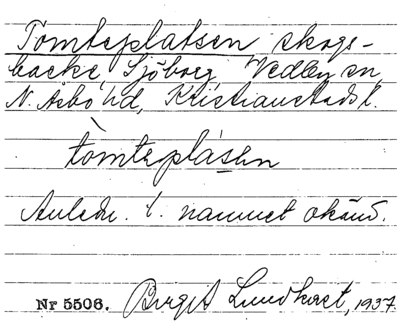 Tomteplatsen skogs-
backe, Sjöborg Vedby sn,
N. Åsbo hd, Kristianstads l.
tòmteplásen
Anledn. t. namnet okänd.
Nr 5506. Birgit Lundkvist, 1937